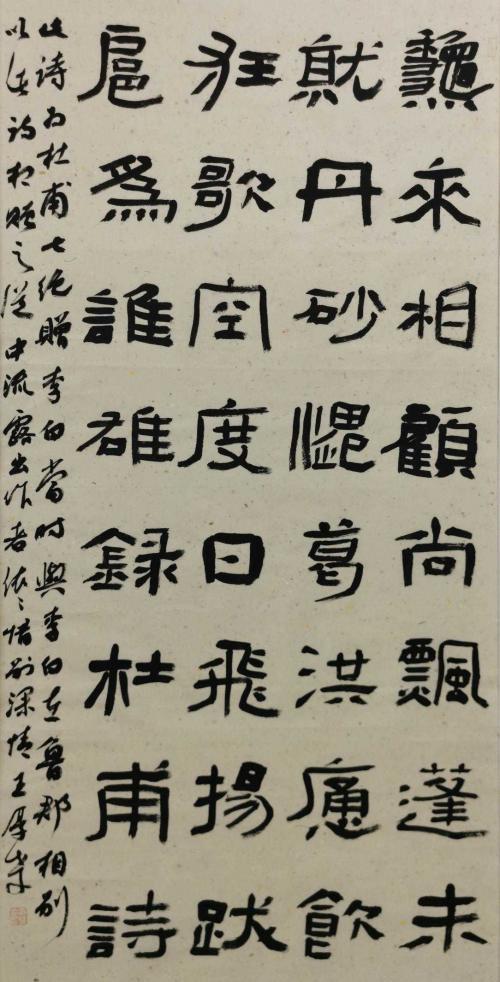 龝來相顧尚飄蓬未
就丹砂愧葛洪痛飲
狂歌空度日飛揚跋
扈為誰雄錄杜甫詩
此詩為杜甫七絕贈李白當時與李白在魯郡相別
以此詩相贈之從中流露出作者依〻惜別深情王厚